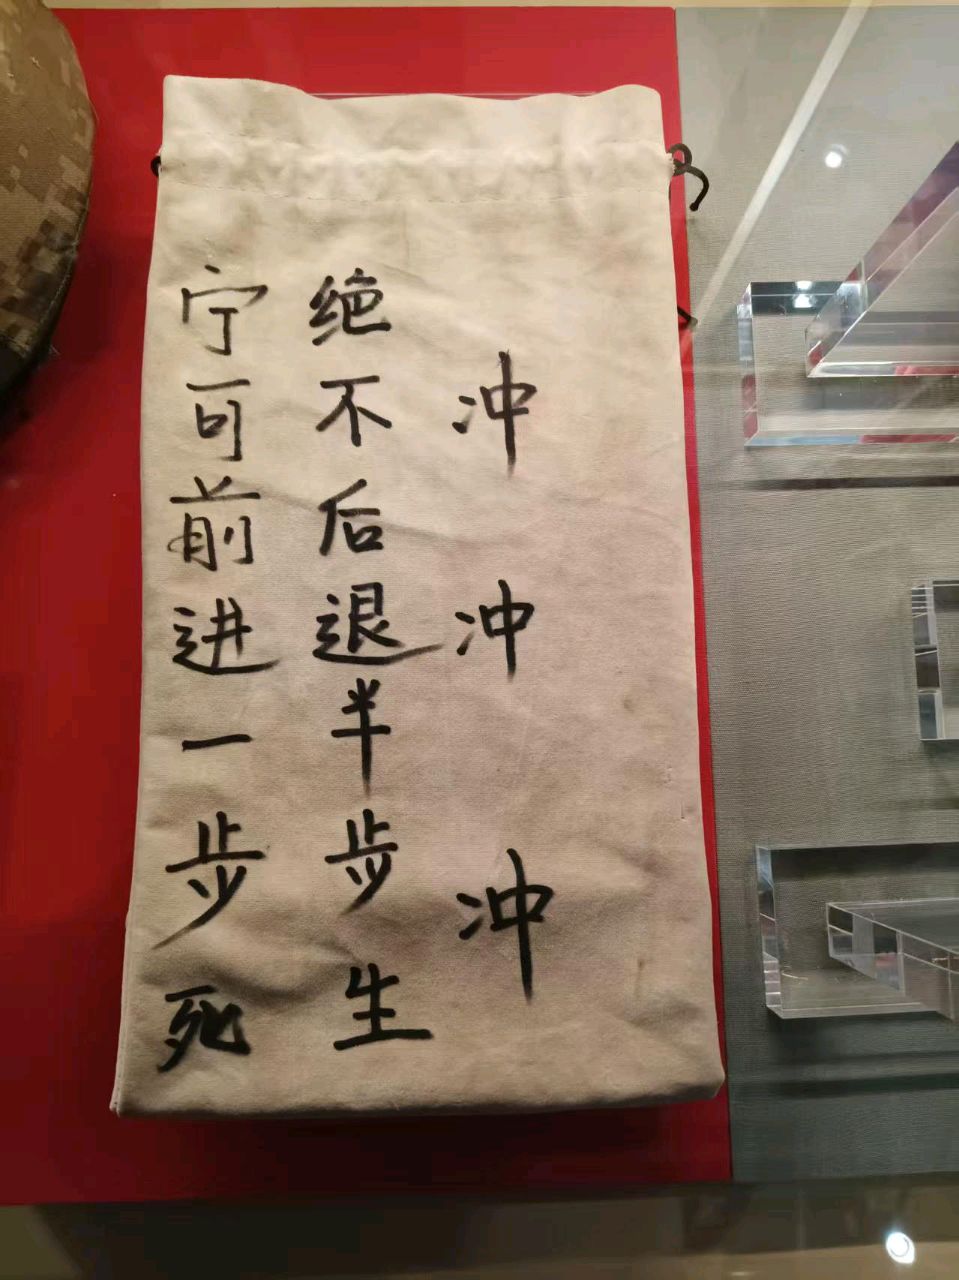 宁可前进一步死
绝不后退半步生
冲冲冲